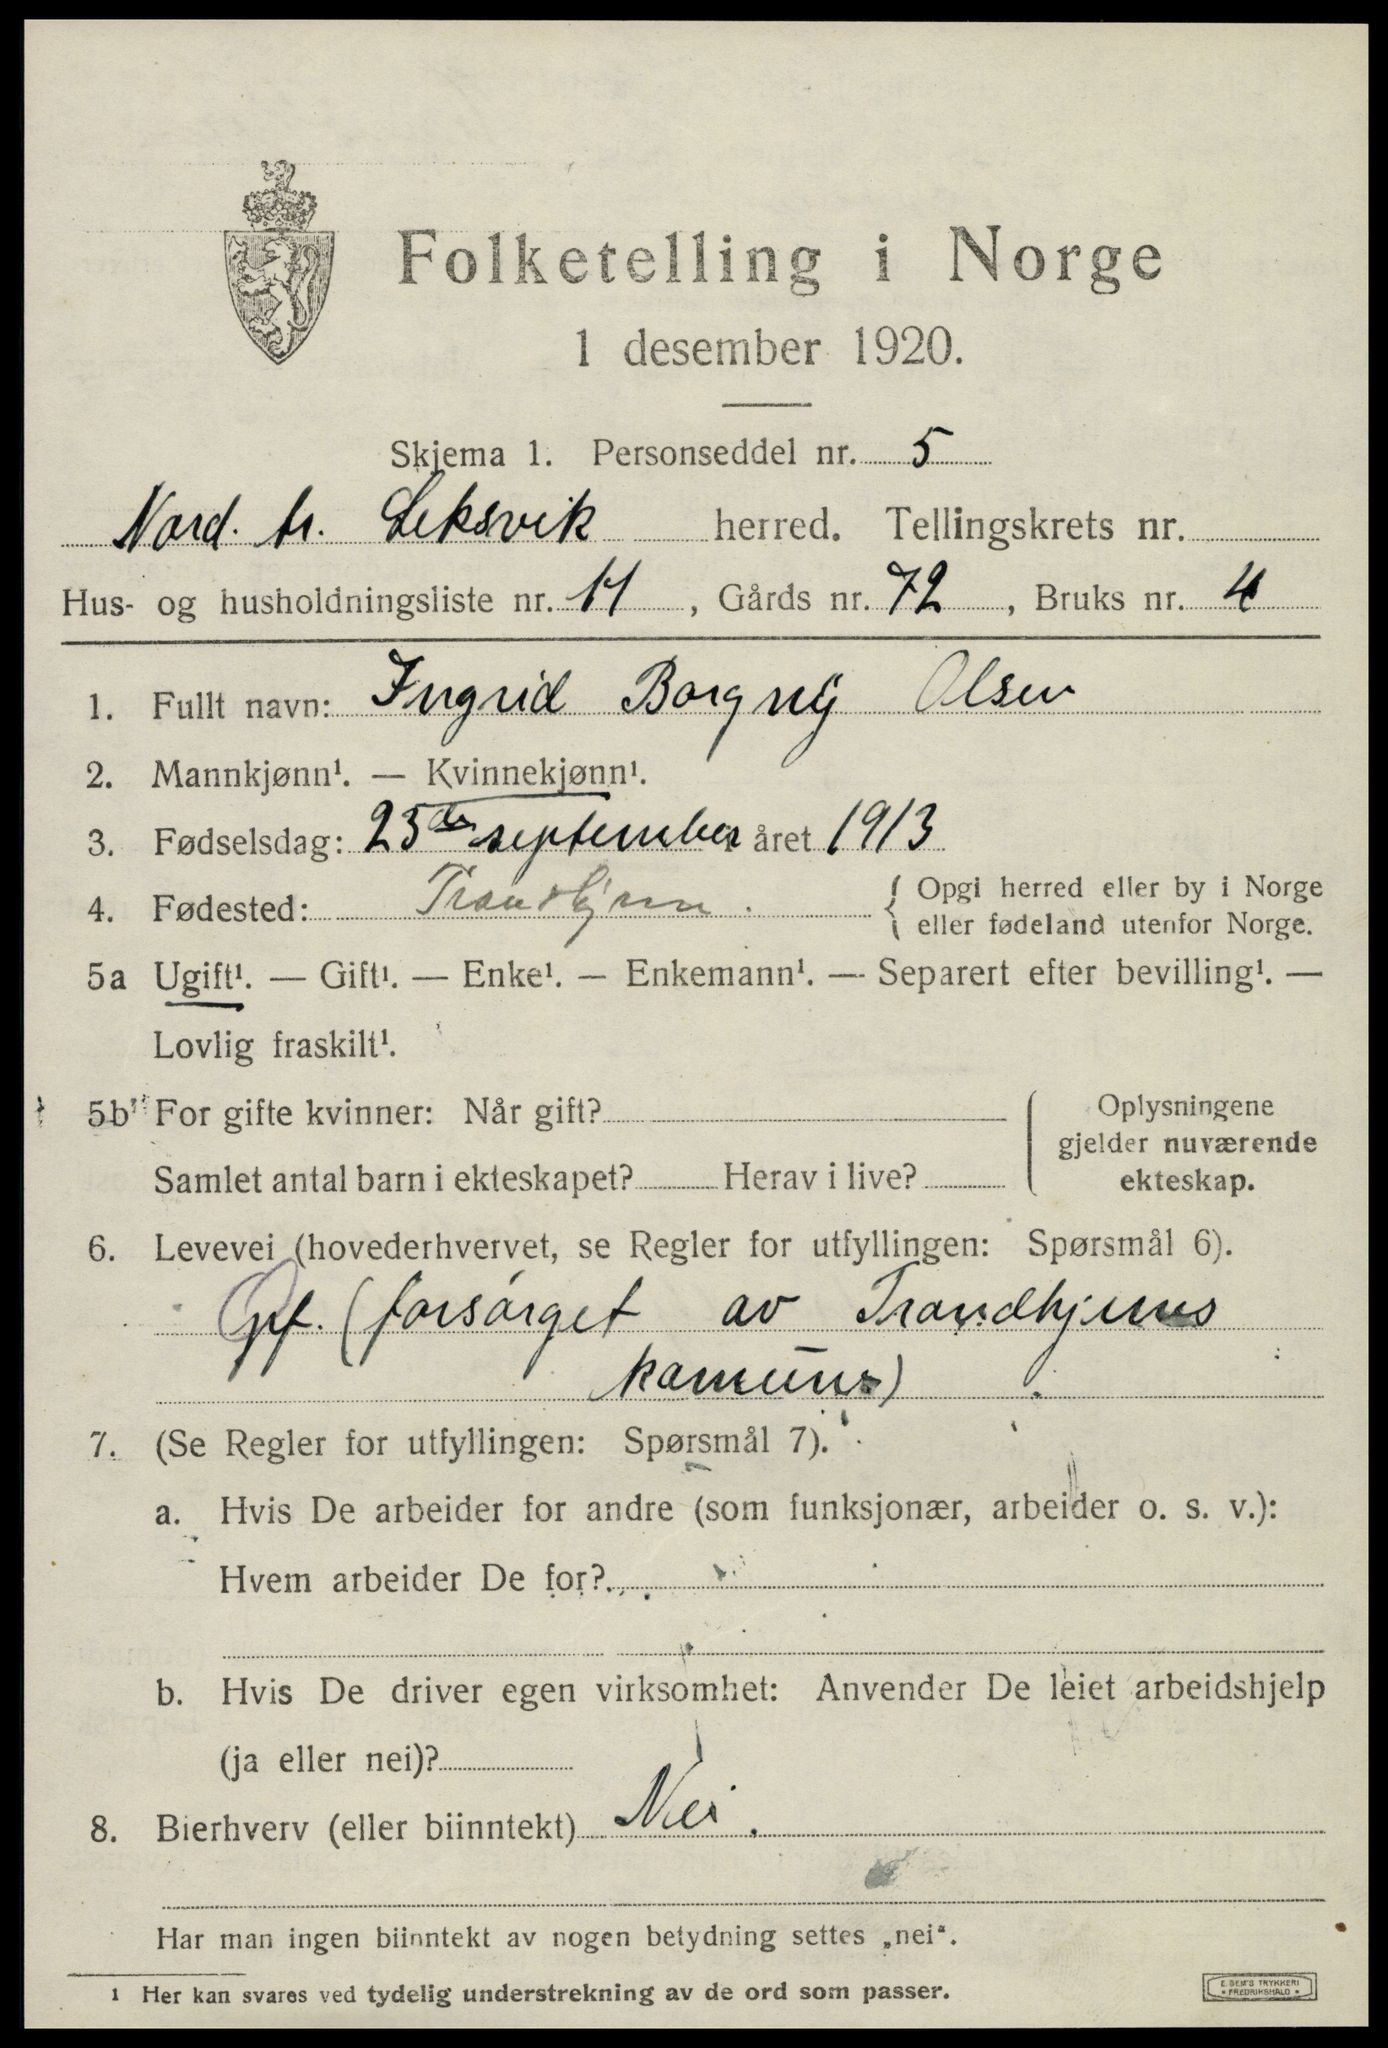 Folketelling i Norge
1 desember 1920.
Skjema 1. Personseddel nr. 5
Nord. tr. Leksvik herred. Tellingskrets nr.
Hus- og husholdningsliste nr. 14, Gårds nr. 72, Bruks nr. 4
1. Fullt navn: Ingrid Borgny Olsen
2. Mannkjønn¹. — Kvinnekjønn¹.
3. Fødselsdag: 25de september året 1913
4. Fødested: Trondhjem. { Opgi herred eller by i Norge
eller fødeland utenfor Norge.
5a Ugift¹. — Gift¹. — Enke¹. — Enkemann¹. — Separert efter bevilling¹. —
Lovlig fraskilt¹.
5b For gifte kvinner: Når gift?
Samlet antal barn i ekteskapet? Herav i live?
Oplysningene
gjelder nuværende
ekteskap.
6. Levevei (hovederhvervet, se Regler for utfyllingen: Spørsmål 6).
(forsørget av Trondhjems
komune)
7. (Se Regler for utfyllingen: Spørsmål 7).
a. Hvis De arbeider for andre (som funksjonær, arbeider o. s. v.):
Hvem arbeider De for?
b. Hvis De driver egen virksomhet: Anvender De leiet arbeidshjelp
(ja eller nei)?
8. Bierhverv (eller biinntekt) Nei.
Har man ingen biinntekt av nogen betydning settes „nei“.
1 Her kan svares ved tydelig understrekning av de ord som passer.
E. SEM'S TRYKKERI
FREDRIKSHALD